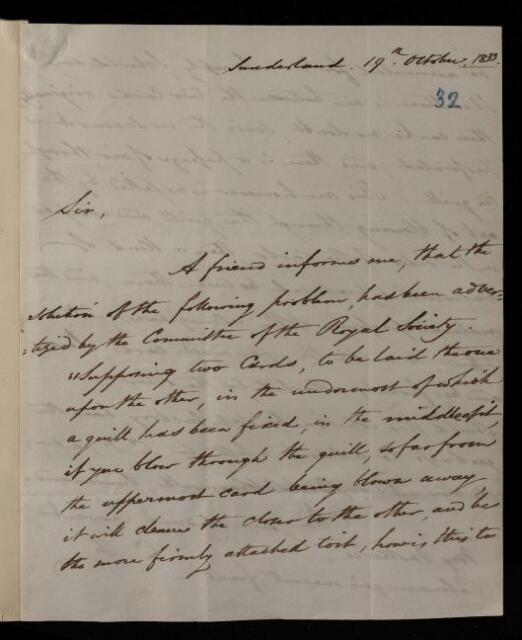 Sunderland. 19th October, 1833.
32
Sir,
A friend informs me, that the
solution of the following problem has been adver-
-tized by the Committee of the Royal Society.
"Supposing two Cards, to be laid the one
upon the other, in the undermost of which
a quill has been fixed, in the middle of it,
if you blow through the quill, so far from
the uppermost card being blown away,
it will cleave the closer to the other, and be
the more firmly attached to it, how is this to